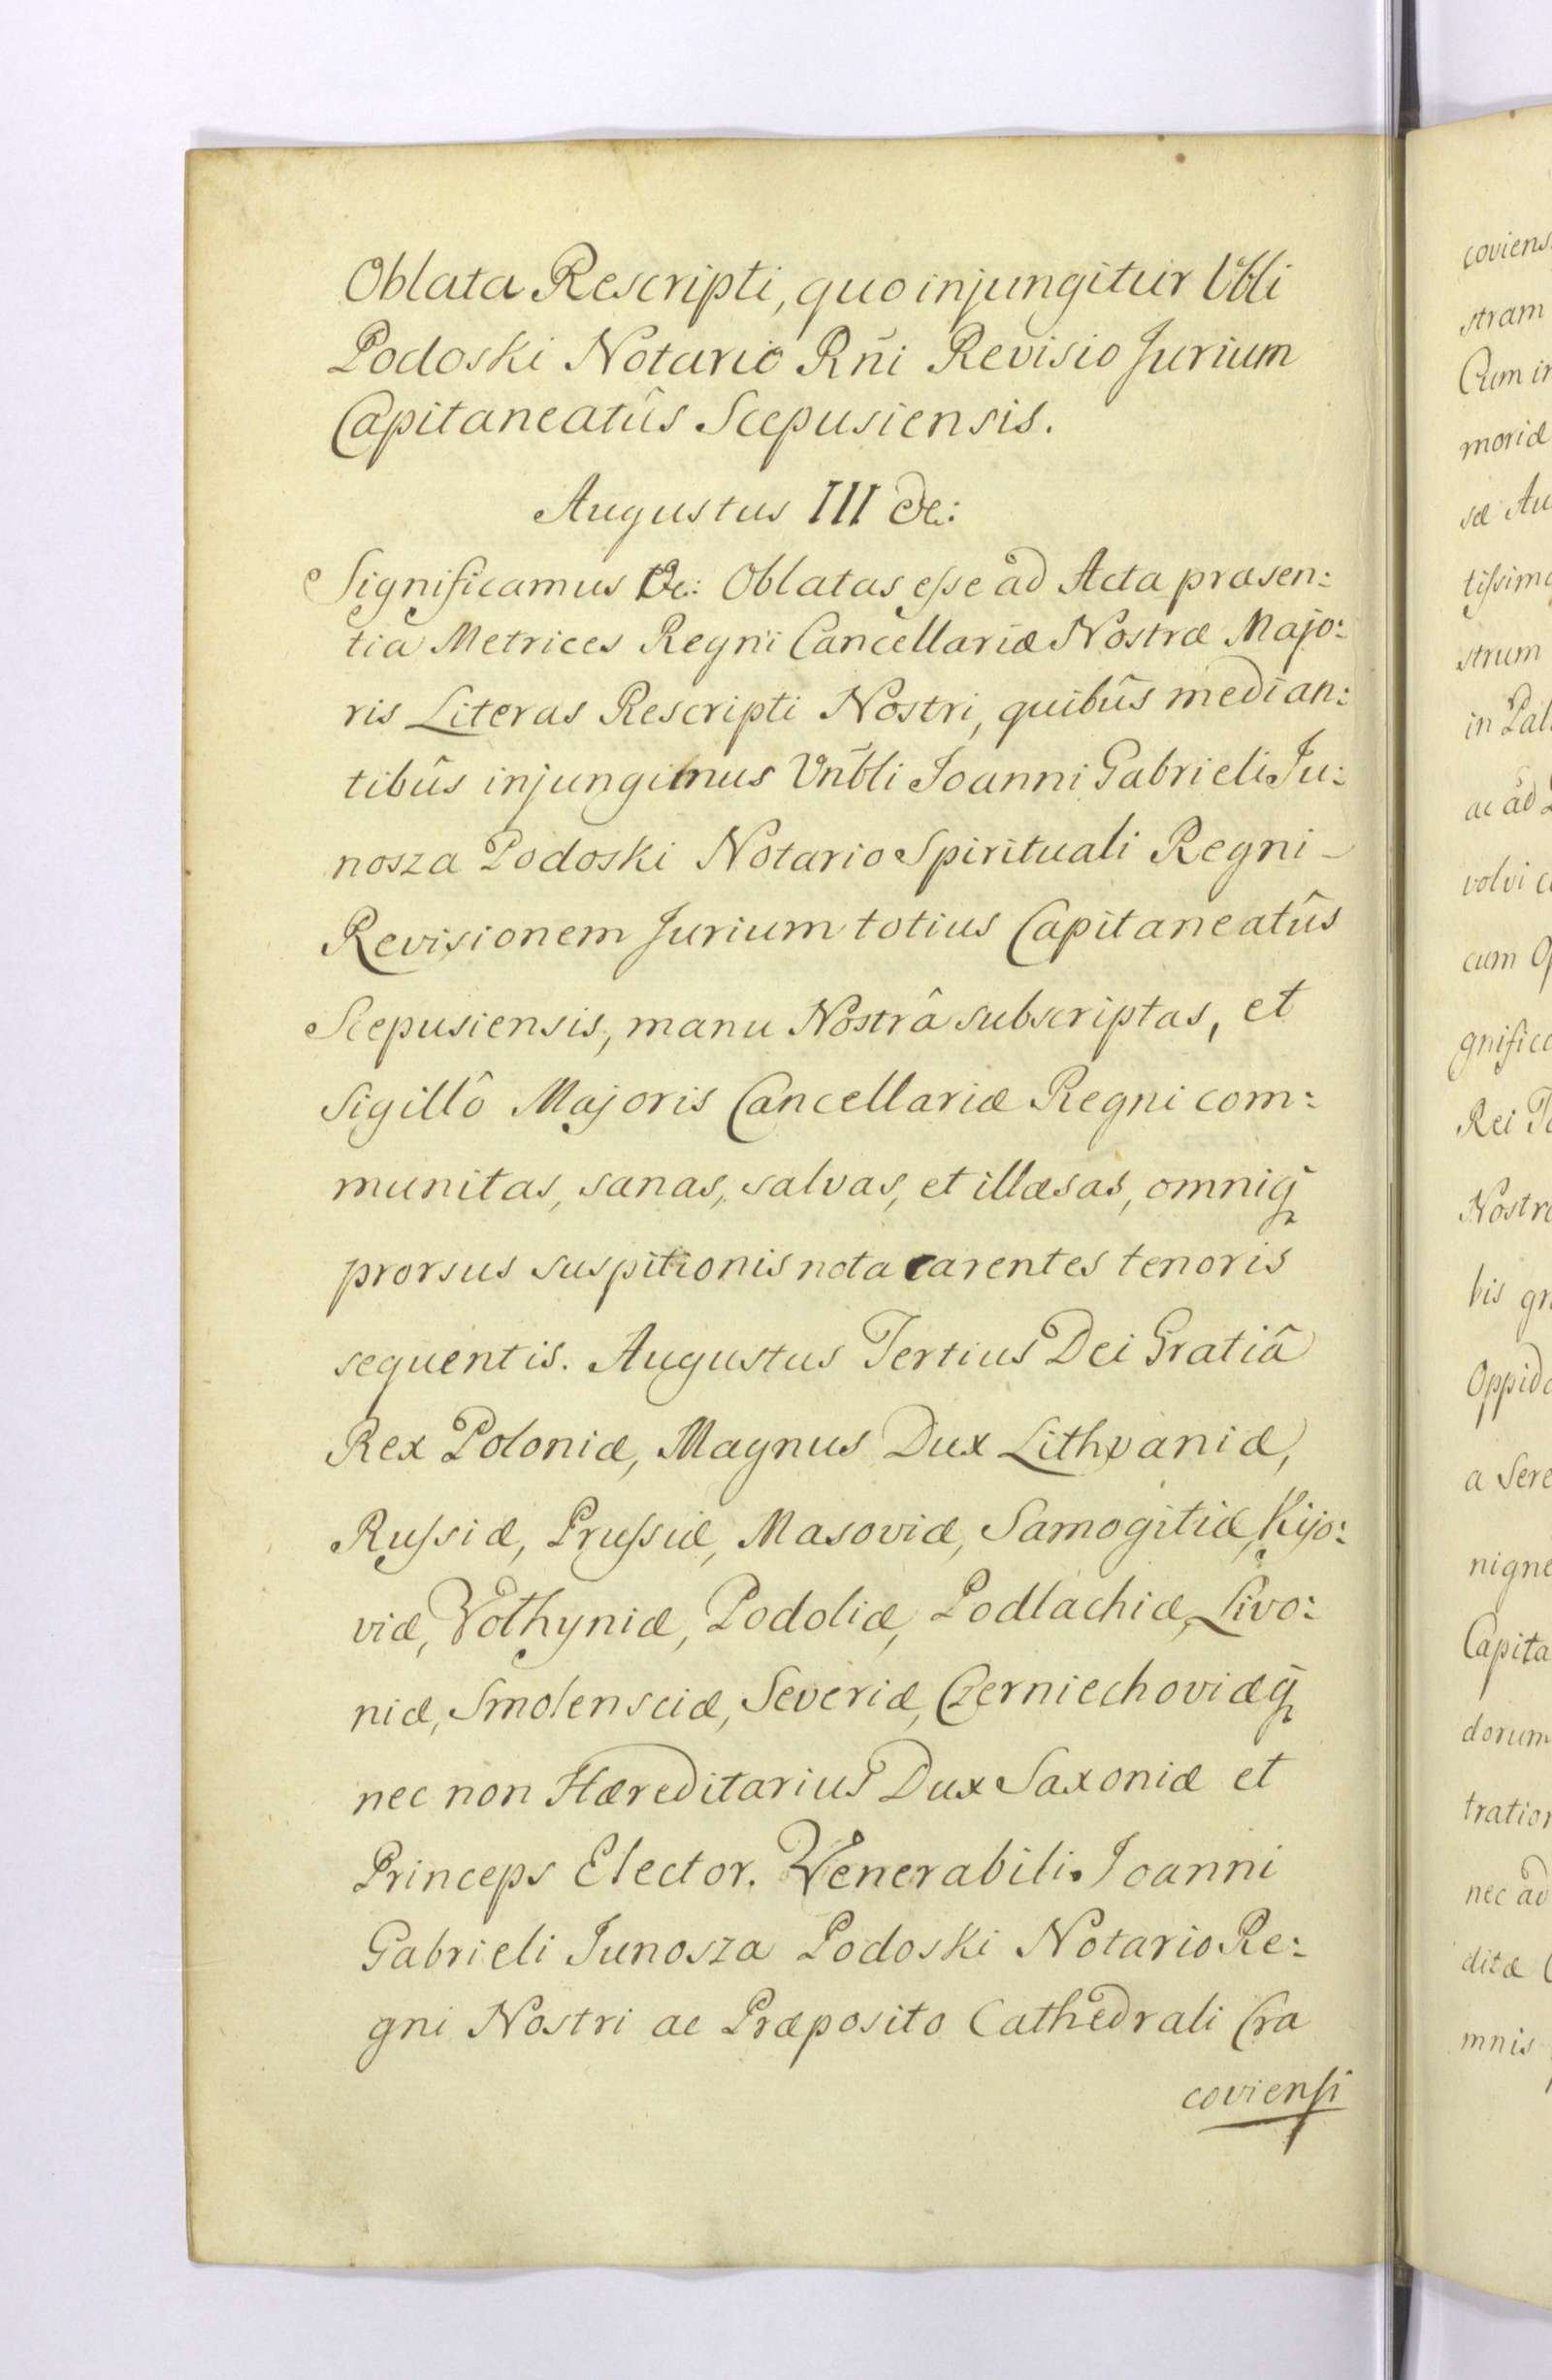 Oblata Rescripti, quo injungitur Vbli
Podoski Notario Rñi Revisio Jurium
Capitaneatûs Scepusiensis.
Augustus III &c:
Significamus &c: Oblatas esse ad Acta præsen:
tia Metrices Regni Cancellariæ Nostræ Majo:
ris Literas Rescripti Nostri, quibûs median:
tibûs injungimus Vñbli Joanni Gabrieli Ju:
nosza Podoski Notario Spirituali Regni -
Revisionem Jurium totius Capitaneatûs
Scepusiensis, manu Nostrâ subscriptas, et
Sigillô Majoris Cancellariæ Regni com:
munitas, sanas, salvas, et illæsas, omniq̃
prorsus suspitionis nota carentes tenoris
sequentis. Augustus Tertius Dei Gratiâ
Rex Poloniæ, Magnus Dux Lithvaniæ,
Russiæ, Prussiæ, Masoviæ, Samogitiæ, Kijo:
viæ, Volhyniæ, Podoliæ, Podlachiæ, Livo:
niæ, Smolensciæ, Severiæ, Czerniechoviæq̃
nec non Hæreditarius Dux Saxoniæ et
Princeps Elector. Venerabili. Joanni
Gabrieli Junosza Podoski Notario Re:
gni Nostri ac Præposito Cathedrali Cra
coviensi
coviens
stram
Cum in
moriæ
sæ Au
tissimo
strum
in Pal
ac ad
volvi c
cum Op
gnifica
Rei
Nostr
bis gr
Oppido
a Sere
nigne
Capita
dorum
tration
nec ad
ditæ
mnis